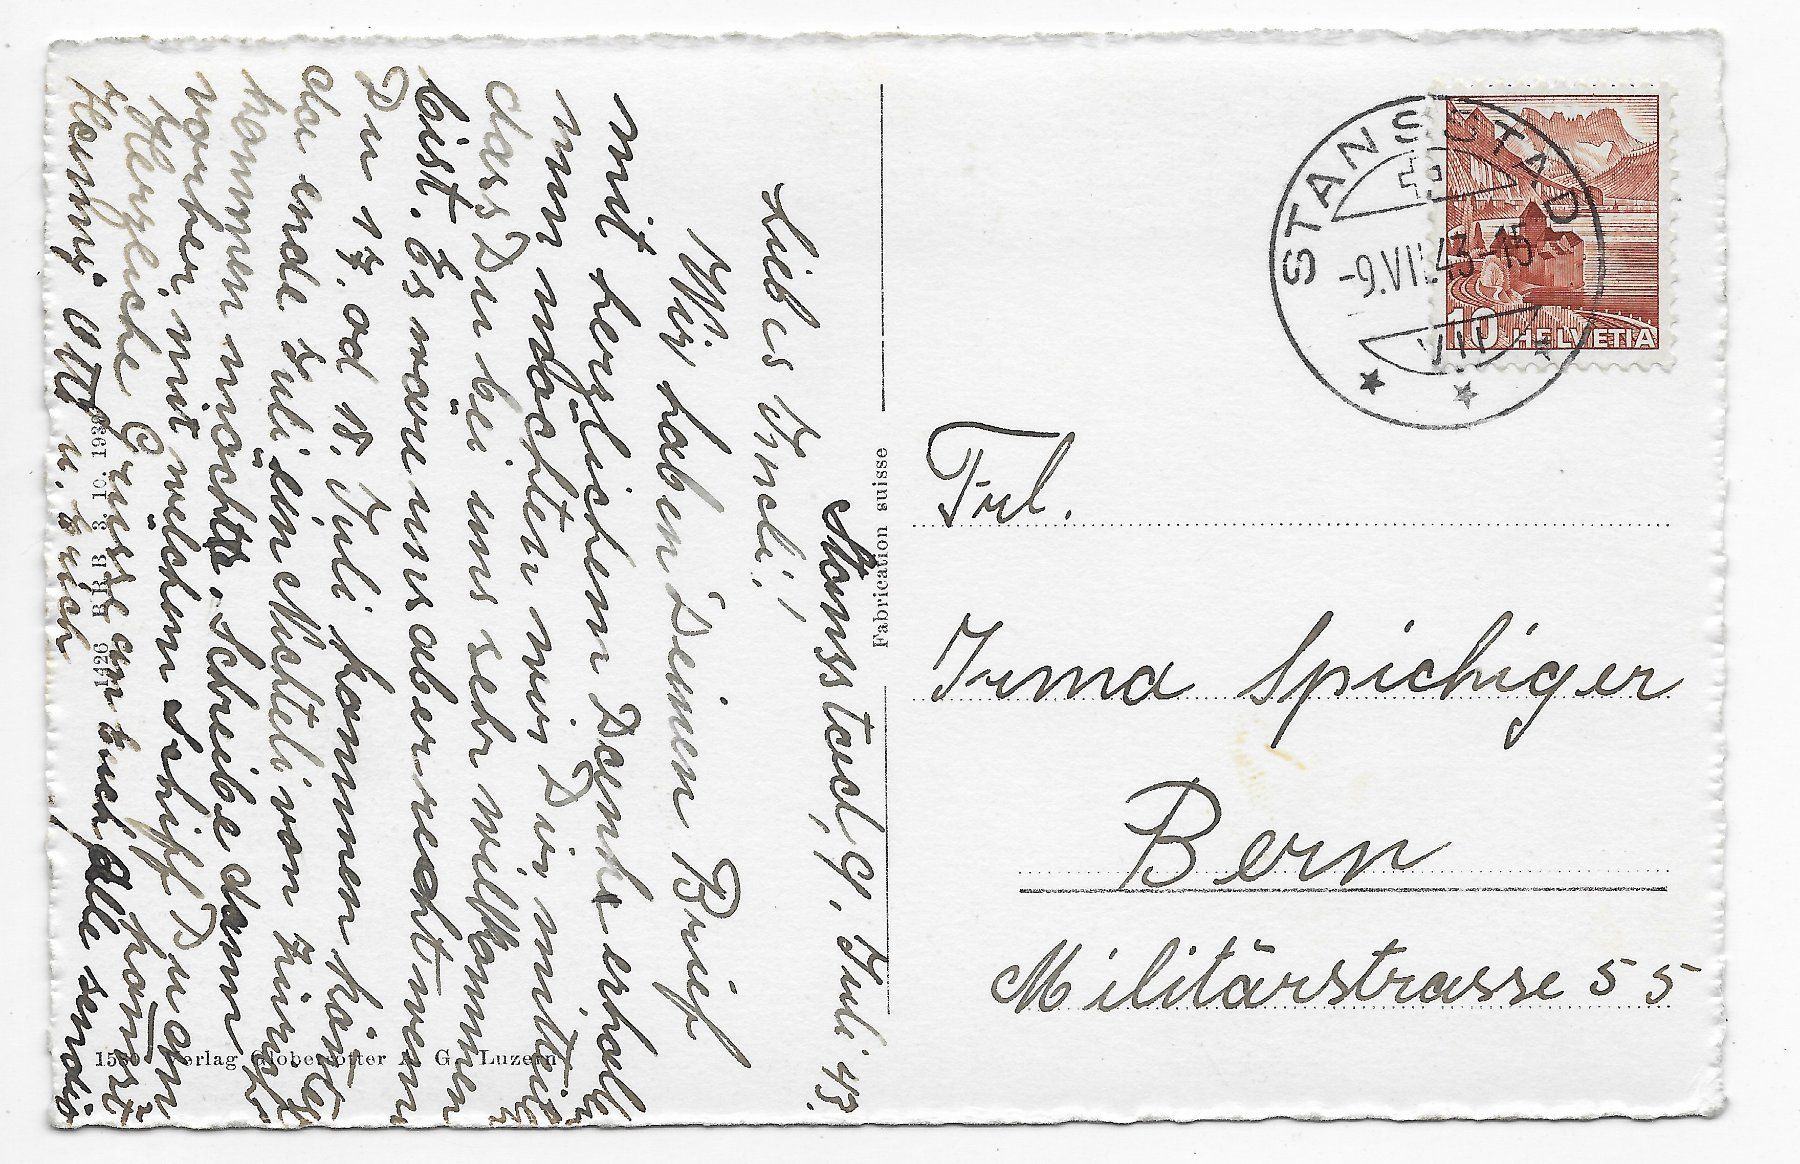 Stansstad, 9. Juli 43.
Liebes Irmeli!
Wir haben Deinen Brief
mit herzlichem Danke erhalten
nun möchten wir Dir mitteilen
dass Du bei uns sehr willkommen
bist. Es wäre uns aber recht wenn
Du 17. od 18. Juli kommen könntest
da ende Juli ein Nichteli von Zürich
kommen möchte. Schreibe dann
vorher mit welchem Schiff Du ankommst
Herzliche Grüsse an Euch alle senden
u. Erich
STANSSTAD
-9.VII.43-15
VII
10 HELVETIA
Frl.
Irma Spichiger
Bern
Militärstrasse 55
Fabrication suisse
1426 BRB 3. 10. 1939
Verlag Globetrotter A. G. Luzern